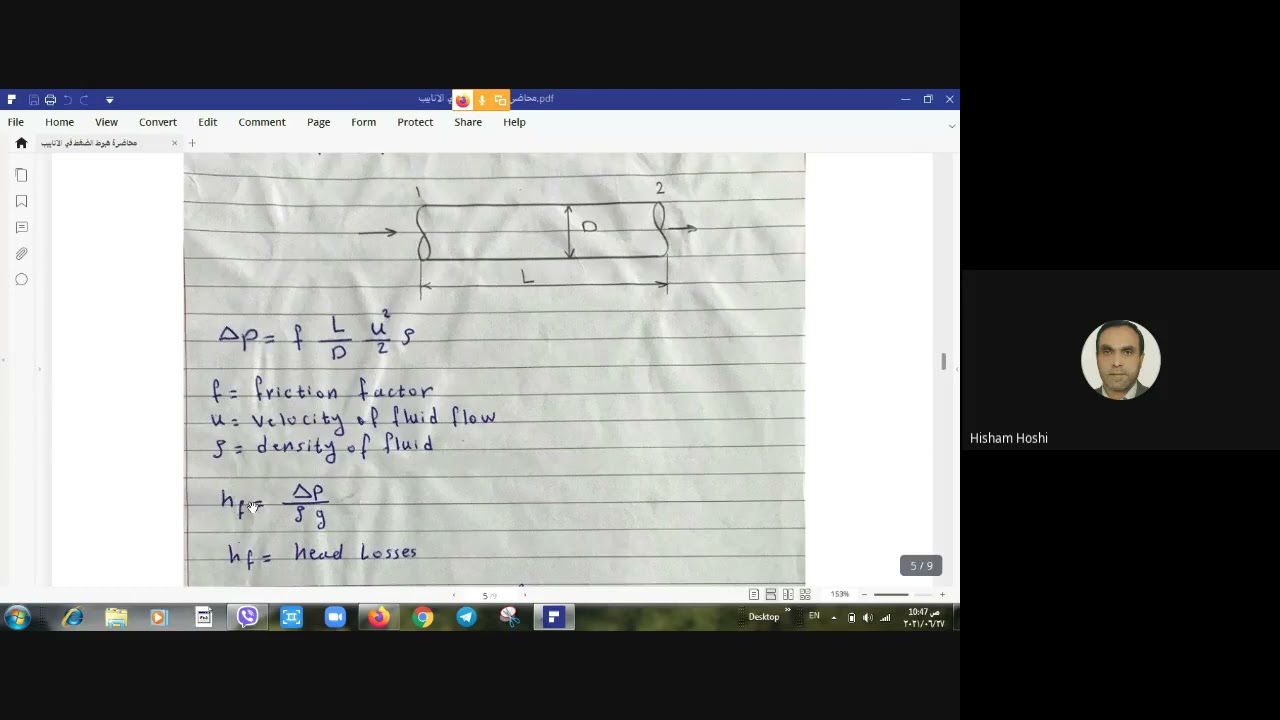 محاضرة هبوط الضغط في الانابيب.pdf
File Home View Convert Edit Comment Page Form Protect Share Help
محاضرة هبوط الضغط في الانابيب
1
2
D
L
Δp = f L/D u²/2 ρ
f = friction factor
u = velocity of fluid flow
ρ = density of fluid
hf = Δp/ρg
hf = head Losses
5 / 9
5 /9
153%
Desktop
EN
10:47 ص
٢٠٢١/٠٦/٢٧
Hisham Hoshi